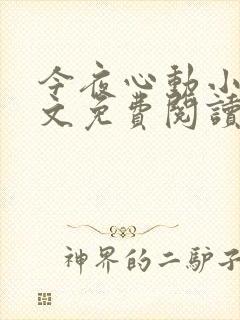 今夜心動小
文免費閱讀
神界的二驴子